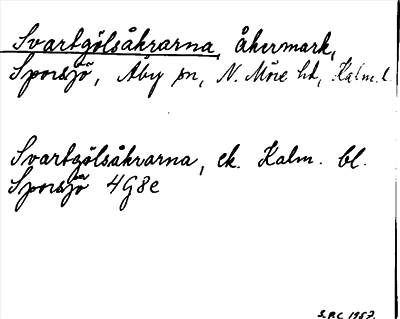 Svartgölsåkrarna, åkermark,
Sporsjö, Åby sn, N. Möre hd, Kalm. l.
Svartgölsåkrarna, ek. Kalm. bl.
Sporsjö 4G8e
S.R.C. 1957.